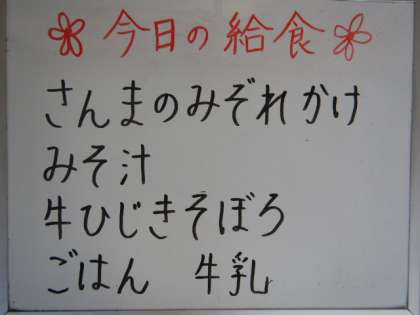 今日の給食
さんまのみぞれかけ
みそ汁
牛ひじきそぼろ
ごはん 牛乳